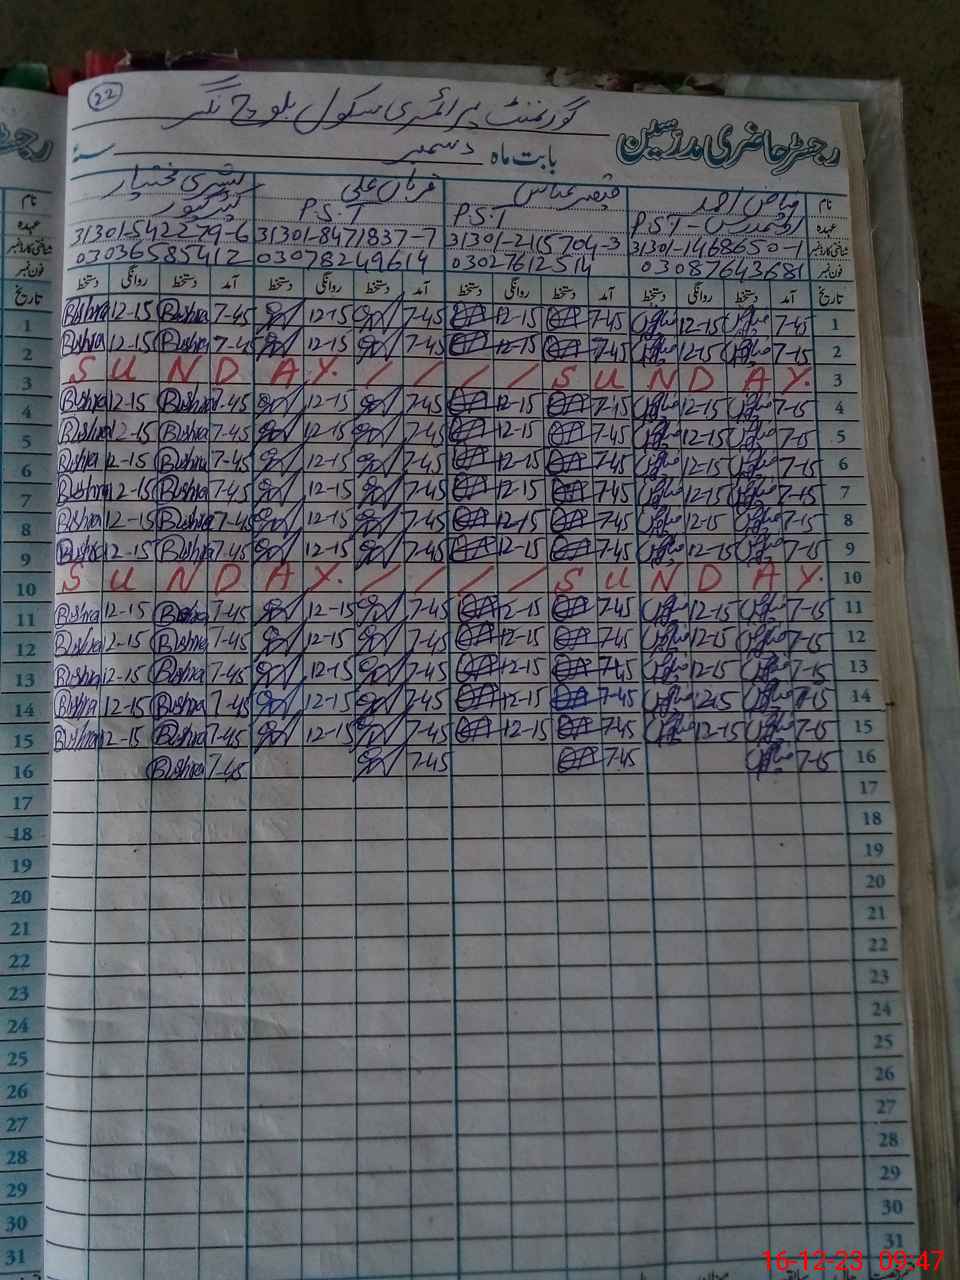 22
گورنمنٹ پرائمری سکول بلوچ نگر
رجسٹر حاضری مدرسین
بابت ماہ دسمبر سنہ
نام ریاض احمد قیصر عباس قربان علی بشریٰ مختیار
عہدہ P.S.T P.S.T P.S.T
شناختی کارڈ نمبر 31301-1468650-1 31301-2115704-3 31301-8471837-7 31301-5422279-6
فون نمبر 03087643681 03027612514 03078249614 03036585412
تاریخ آمد دستخط روانگی دستخط آمد دستخط روانگی دستخط آمد دستخط روانگی دستخط آمد دستخط روانگی دستخط
1 Bushra 12-15 Bushra 7-45 12-15 7-45 12-15 7-45 12-15 7-45 1
2 Bushra 12-15 Bushra 7-45 12-15 7-45 12-15 7-45 12-15 7-15 2
S U N D A Y. / / / / S U N D A Y. 3
4 Bushra 12-15 Bushra 7-45 12-15 7-45 12-15 7-45 12-15 7-15 4
5 Bushra 12-15 Bushra 7-45 12-15 7-45 12-15 7-45 12-15 7-15 5
6 Bushra 12-15 Bushra 7-45 12-15 7-45 12-15 7-45 12-15 7-15 6
7 Bushra 12-15 Bushra 7-45 12-15 7-45 12-15 7-45 12-15 7-15 7
8 Bushra 12-15 Bushra 7-45 12-15 7-45 12-15 7-45 12-15 7-15 8
9 Bushra 12-15 Bushra 7-45 12-15 7-45 12-15 7-45 12-15 7-15 9
10 S U N D A Y. / / / / S U N D A Y. 10
11 Bushra 12-15 Bushra 7-45 12-15 7-45 12-15 7-45 12-15 7-15 11
12 Bushra 12-15 Bushra 7-45 12-15 7-45 12-15 7-45 12-15 7-15 12
13 Bushra 12-15 Bushra 7-45 12-15 7-45 12-15 7-45 12-15 7-15 13
14 Bushra 12-15 Bushra 7-45 12-15 7-45 12-15 7-45 12-15 7-15 14
15 Bushra 12-15 Bushra 7-45 12-15 7-45 12-15 7-45 12-15 7-15 15
16 Bushra 7-45 7-45 7-45 7-15 16
17 17
18 18
19 19
20 20
21 21
22 22
23 23
24 24
25 25
26 26
27 27
28 28
29 29
30 30
31 31
16-12-23 09:47